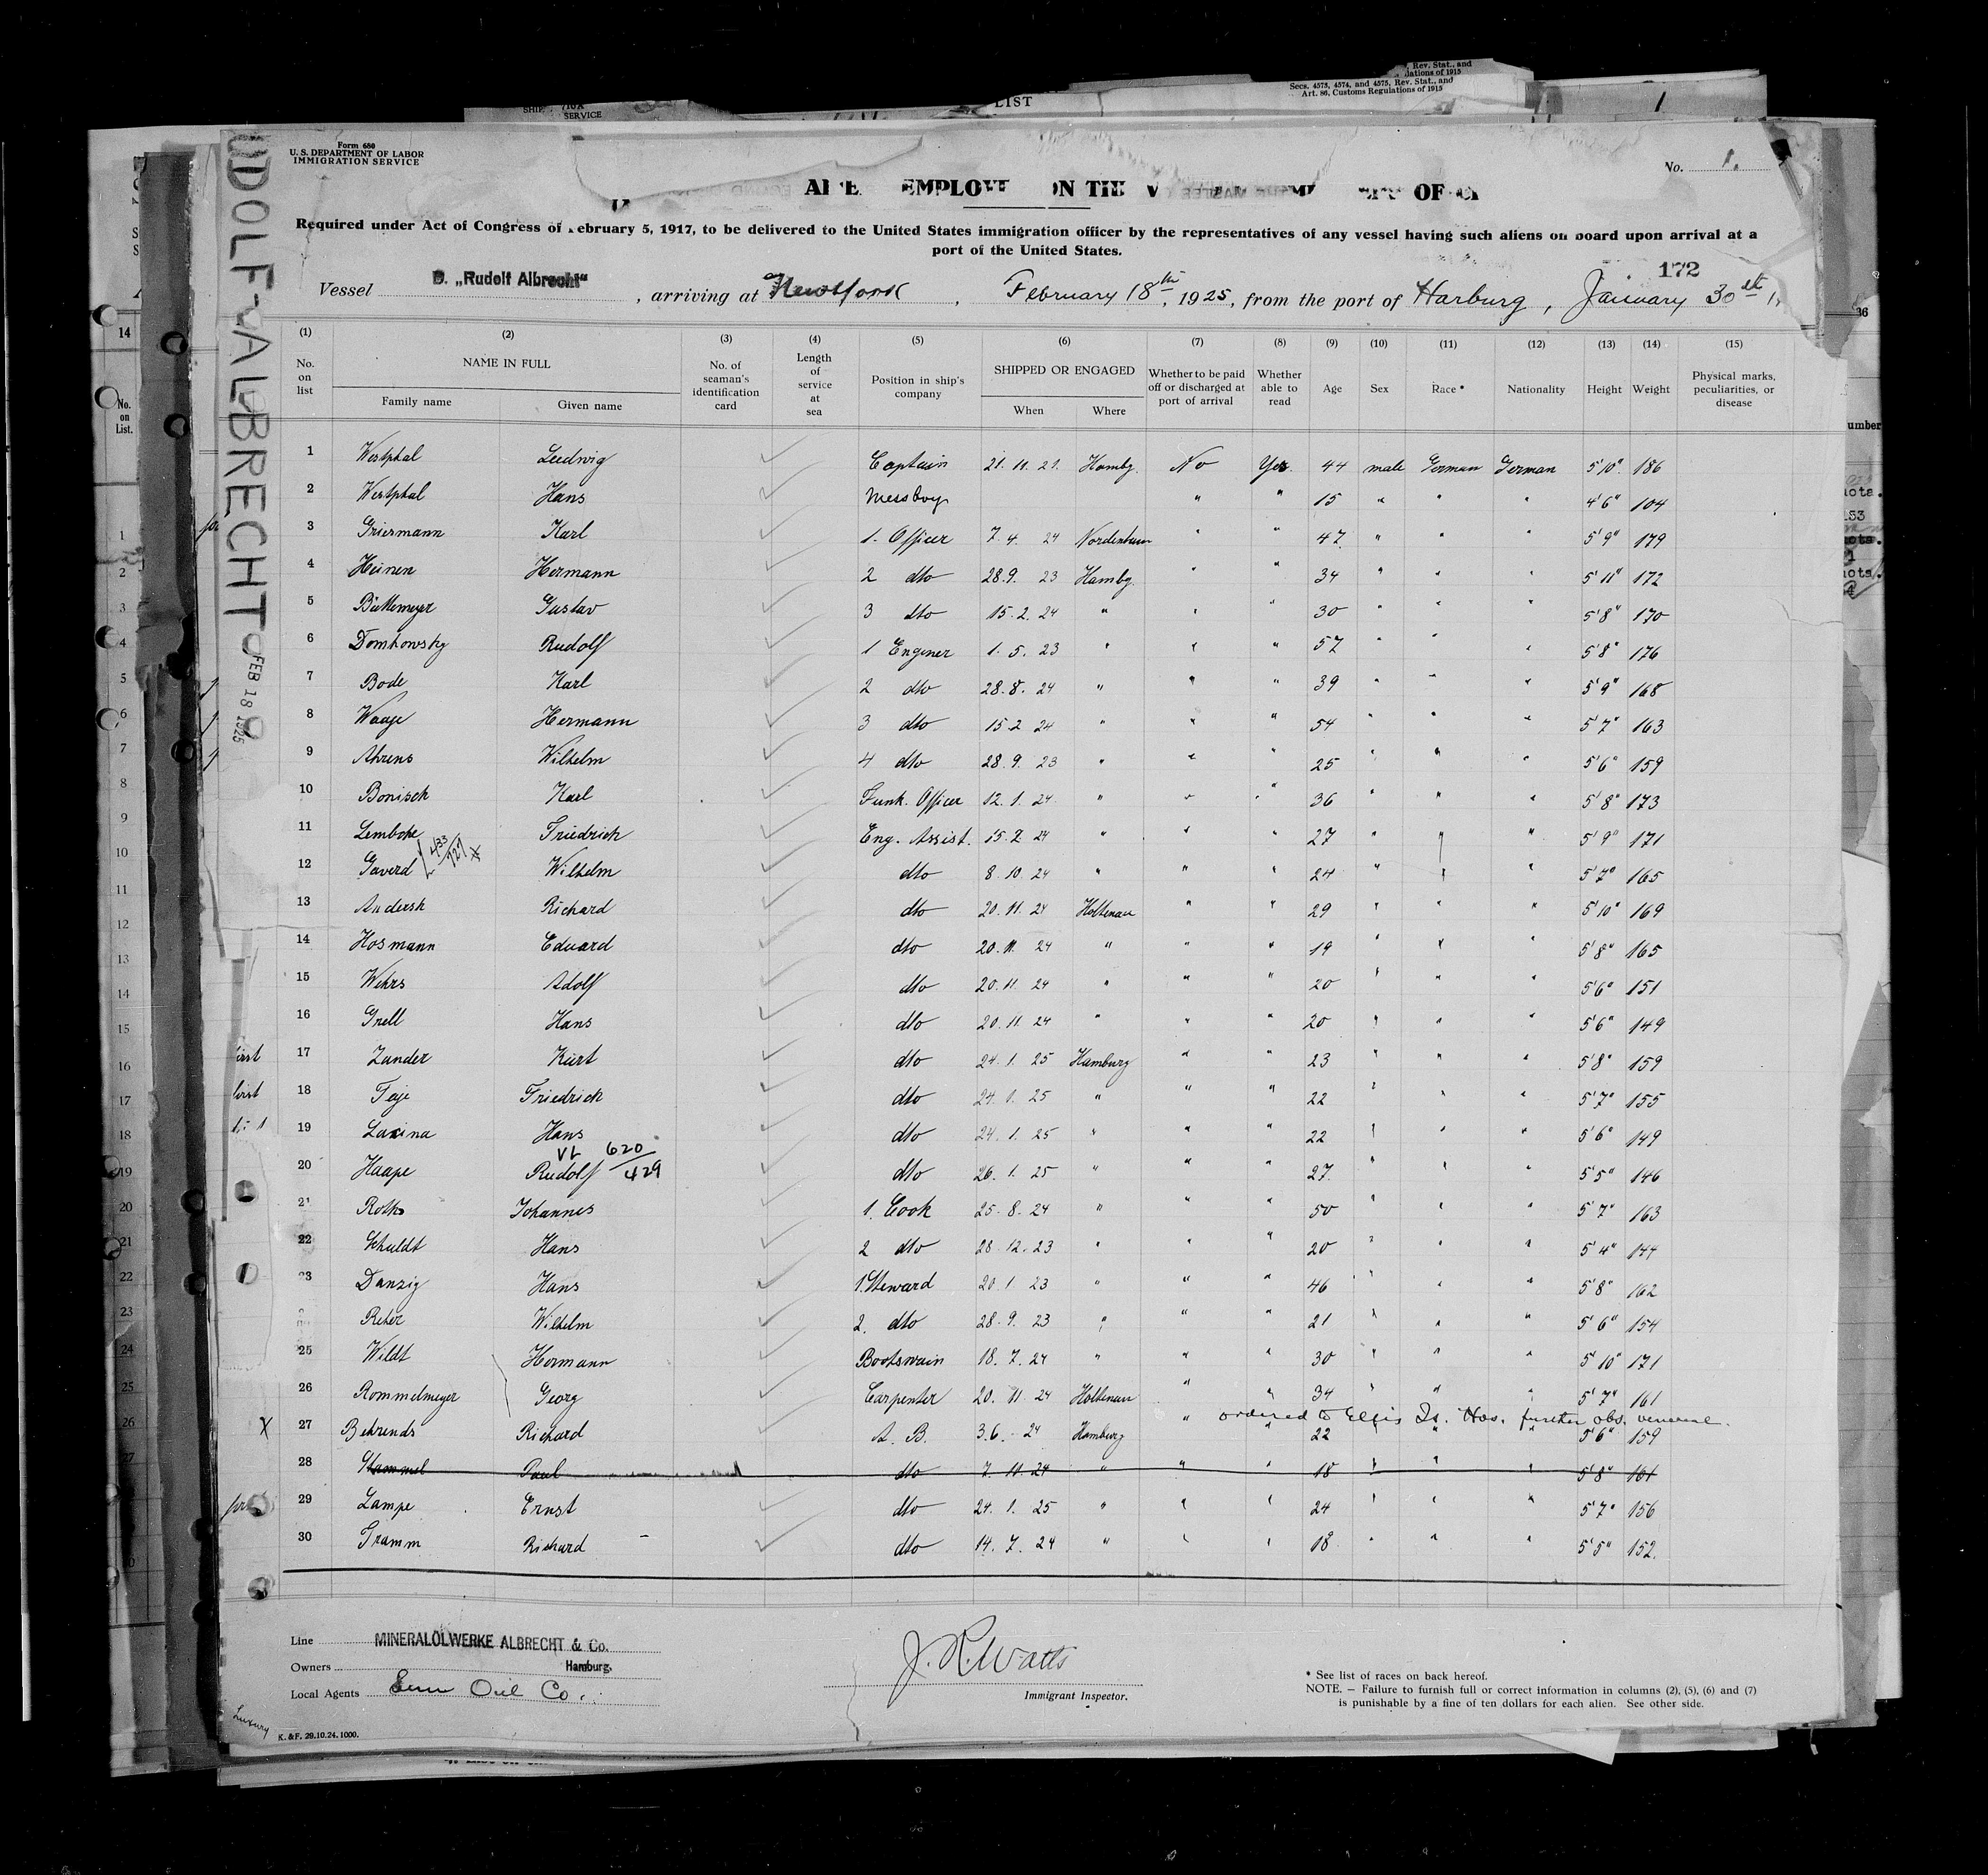 Rev. Stat., and
Secs. 4573, 4574, and 4575, Rev. Stat., and
Art. 86, Customs Regulations of 1915
LIST
SERVICE
Form 680
U. S. DEPARTMENT OF LABOR
IMMIGRATION SERVICE
No. 1.
EMPLOYE ON THE OF
Required under Act of Congress of February 5, 1917, to be delivered to the United States immigration officer by the representatives of any vessel having such aliens on board upon arrival at a
port of the United States.
172
Vessel D. „Rudolf Albrecht“, arriving at New York, February 18th, 1925, from the port of Harburg, January 30th
UDOLF-ALBRECHT
FEB 18 1925
(1) (2) (3) (4) (5) (6) (7) (8) (9) (10) (11) (12) (13) (14) (15)
No. on list NAME IN FULL No. of seaman's identification card Length of service at sea Position in ship's company SHIPPED OR ENGAGED Whether to be paid off or discharged at port of arrival Whether able to read Age Sex Race * Nationality Height Weight Physical marks, peculiarities, or disease
Family name Given name When Where
1 Westphal Ludwig Captain 21. 11. 21. Hambg. No Yes. 44 male German German 5'10" 186
2 Westphal Hans Messboy " " 15 " " " 4'6" 104
3 Griermann Karl 1. Officer 7. 4. 24 Nordenham " " 47 " " " 5'9" 179
4 Heinen Hermann 2 dto 28.9. 23 Hambg. " " 34 " " " 5'11" 172
5 Gustav 3 dto 15. 2. 24 " " " 30 " " " 5'8" 170
6 Domkowsky Rudolf 1 Enginer 1. 5. 23 " " " 57 " " " 5'8" 176
7 Bode Karl 2 dto 28. 8. 24 " " " 39 " " " 5'9" 168
8 Waaje Hermann 3 dto 15 2 24 " " " 54 " " " 5'7" 163
9 Ahrens Wilhelm 4 dto 28. 9. 23 " " " 25 " " " 5'6" 159
10 Bonisch Karl Funk. Officer 12. 1. 24 " " " 36 " " " 5'8" 173
11 Lembcke Friedrich Eng. Assist. 15. 2 24 " " " 27 " " " 5'9" 171
433/727 X
12 Gaverd Wilhelm dto 8. 10. 24 " " " 24 " " " 5'7" 165
13 Andersk Richard dto 20. 11. 24 Holtenau " " 29 " " " 5'10" 169
14 Hosmann Eduard dto 20. 11. 24 " " " 19 " " " 5'8" 165
15 Wehrs Adolf dto 20. 11. 24 " " " 20 " " " 5'6" 151
16 Grell Hans dto 20. 11. 24 " " " 20 " " " 5'6" 149
17 Zander Kurt dto 24. 1. 25 Hamburg " " 23 " " " 5'8" 159
18 Faje Friedrich dto 24. 1. 25 " " " 22 " " " 5'7" 155
19 Laxina Hans dto 24. 1. 25 " " " 22 " " " 5'6" 149
VL 620/429
20 Haape Rudolf dto 26. 1. 25 " " " 27. " " " 5'5" 146
21 Roths Johannes 1. Cook 25. 8. 24 " " " 50 " " " 5'7" 163
22 Schuldt Hans 2 dto 28. 12. 23 " " " 20 " " " 5'4" 144
23 Danzig Hans 1. Steward 20. 1. 23 " " " 46 " " " 5'8" 162
Reher Wilhelm 2. dto 28. 9. 23 " " " 21 " " " 5'6" 154
25 Wildt Hermann Bootswain 18. 7. 24 " " " 30 " " " 5'10" 171
26 Rommelmeyer Georg Carpenter 20. 11. 24 Holtenau " " 34 " " " 5'7" 161
ordered to Ellis Is. Hos. further obs. venereal.
X 27 Behrends Richard A. B. 3.6. 24 Hamburg " " 22 " " 5'6" 159
28 Stammel Paul dto 7. 11. 24 " " " 18 " " " 5'8" 161
29 Lampe Ernst dto 24. 1. 25 " " " 24 " " " 5'7" 156
30 Tramm Richard dto 14. 7. 24 " " " 18 " " " 5'5" 152.
Line MINERALÖLWERKE ALBRECHT & Co.
Owners Hamburg.
Local Agents Sun Oil Co.
J. R. Watts
Immigrant Inspector.
* See list of races on back hereof.
NOTE. — Failure to furnish full or correct information in columns (2), (5), (6) and (7)
is punishable by a fine of ten dollars for each alien. See other side.
K. & F. 29.10.24. 1000.